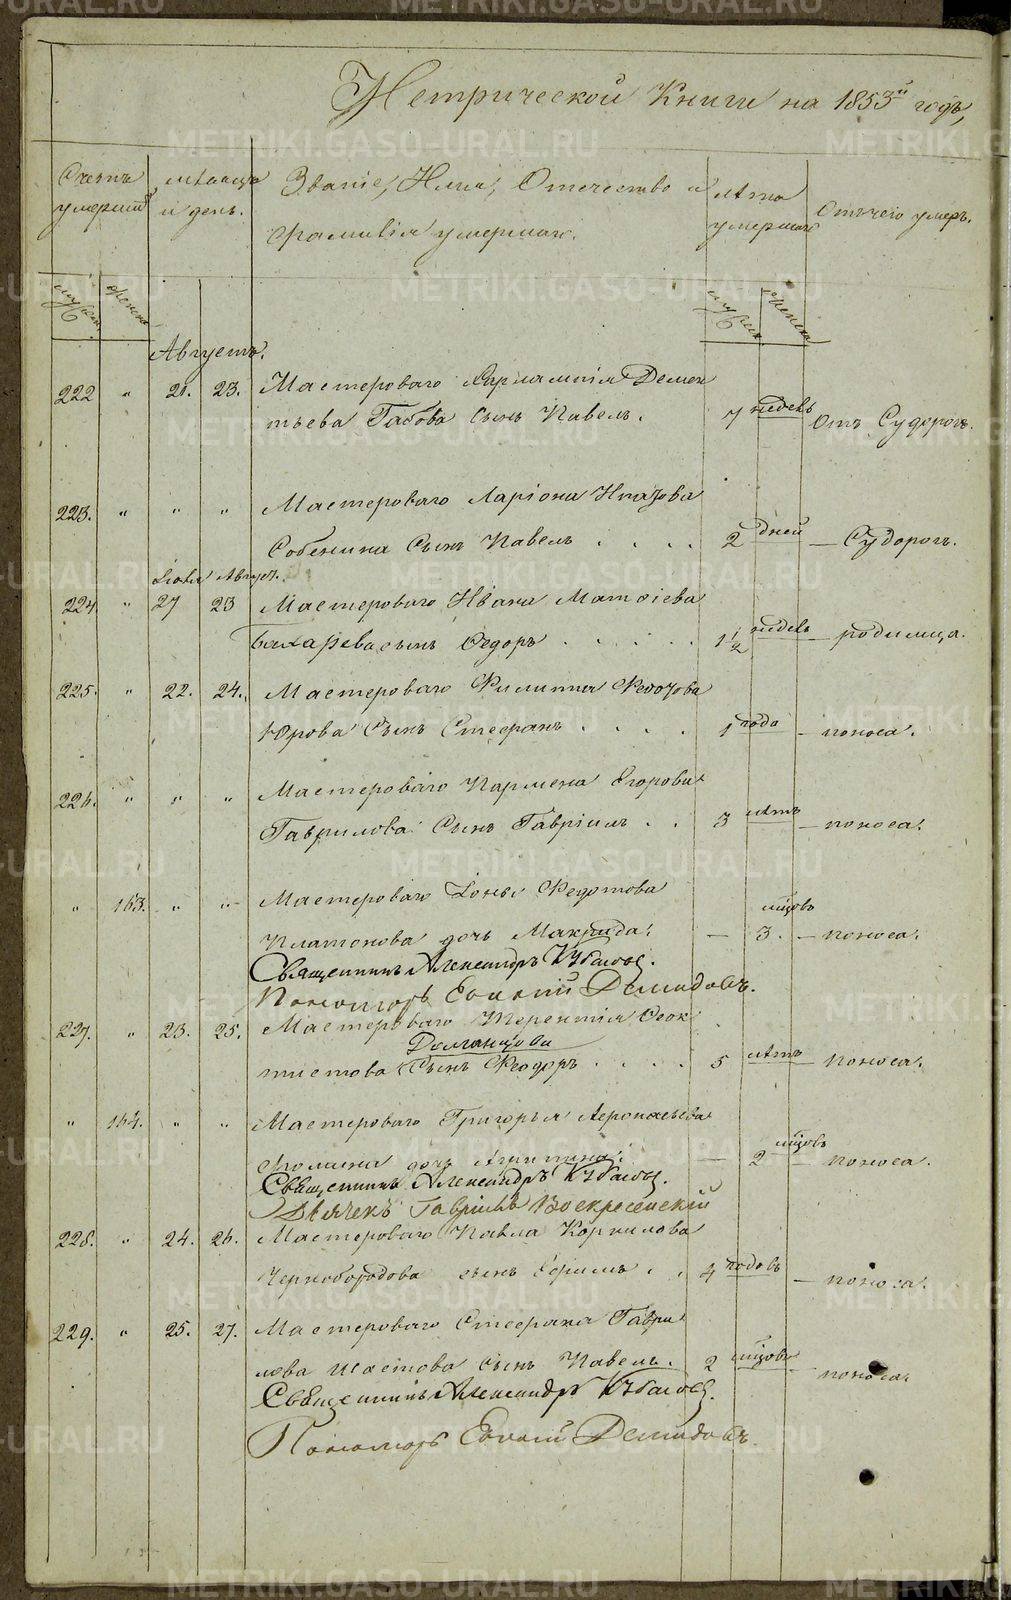 Метрической Книги на 1853й годъ,
Счетъ умерших
мѣсяцъ и день.
Званіе, Имя, Отечество и фамилія умершаго.
лѣта умершаго
Отъ чего умеръ.
мужеск. женска
мужеск. женска
Августъ.
222 " 21. 23. Мастероваго Харлампія Демен
тьева Габова Сынъ Павелъ. 7 недель Отъ Судорогъ.
223. " " " Мастероваго Ларіона Изотова
Собенина Сынъ Павелъ . . . . 2 дней — Судорогъ.
Август.
224 " 27 23 Мастероваго Ивана Матѳіева
Бахарева сынъ Ѳедоръ . . . . . 1 1/2 недель — родимца.
225. " 22. 24. Мастероваго Филиппа Федотова
Юрова Сынъ Стефанъ . . . . 1 года — поноса.
226. " " " Мастероваго Пармена Егорова
Гаврилова Сынъ Гавріилъ . . 3 лѣтъ — поноса.
" 163. " " Мастероваго Іоны Федотова
Платонова дочь Макрида. — 3. мцовъ — поноса.
Священникъ Александръ
Пономарь Евѳимій Демидовъ.
227. " 23. 25. Мастероваго Терентія Ѳеок
Долганцова
тистова Сынъ Феодоръ . . . . 5 лѣтъ — поноса.
" 164. " " Мастероваго Григорья
Фомина дочь — 2 мцовъ — поноса.
Священникъ Александръ
Дьячекъ Гавріилъ Воскресенскій
228. " 24. 26. Мастероваго Павла Корнилова
Чернобородова сынъ Ефимъ . . 4 годовъ — поноса.
229. " 25. 27. Мастероваго Стефана Гаври
лова Шастова Сынъ Павелъ. 2 мцовъ — поноса.
Священникъ Александръ
Пономарь Евѳимій Демидовъ
METRIKI.GASO-URAL.RU